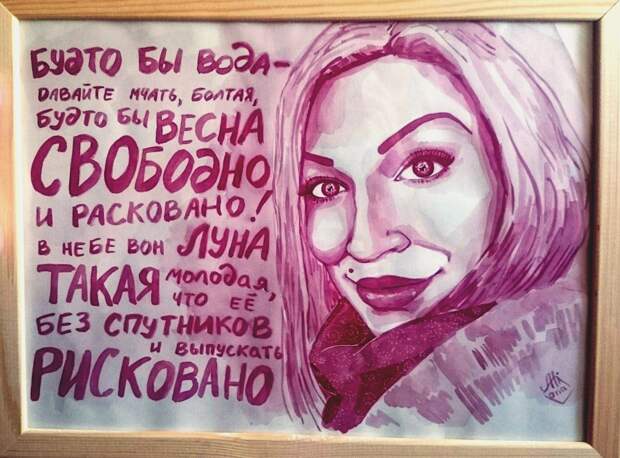 БУДТО БЫ ВОДА-
ДАВАЙТЕ МЧАТЬ, БОЛТАЯ,
БУДТО БЫ ВЕСНА
СВОБОДНО
И РАСКОВАНО!
В НЕБЕ ВОН ЛУНА
ТАКАЯ молодая,
ЧТО ЕЁ
БЕЗ СПУТНИКОВ
И ВЫПУСКАТЬ
РИСКОВАНО